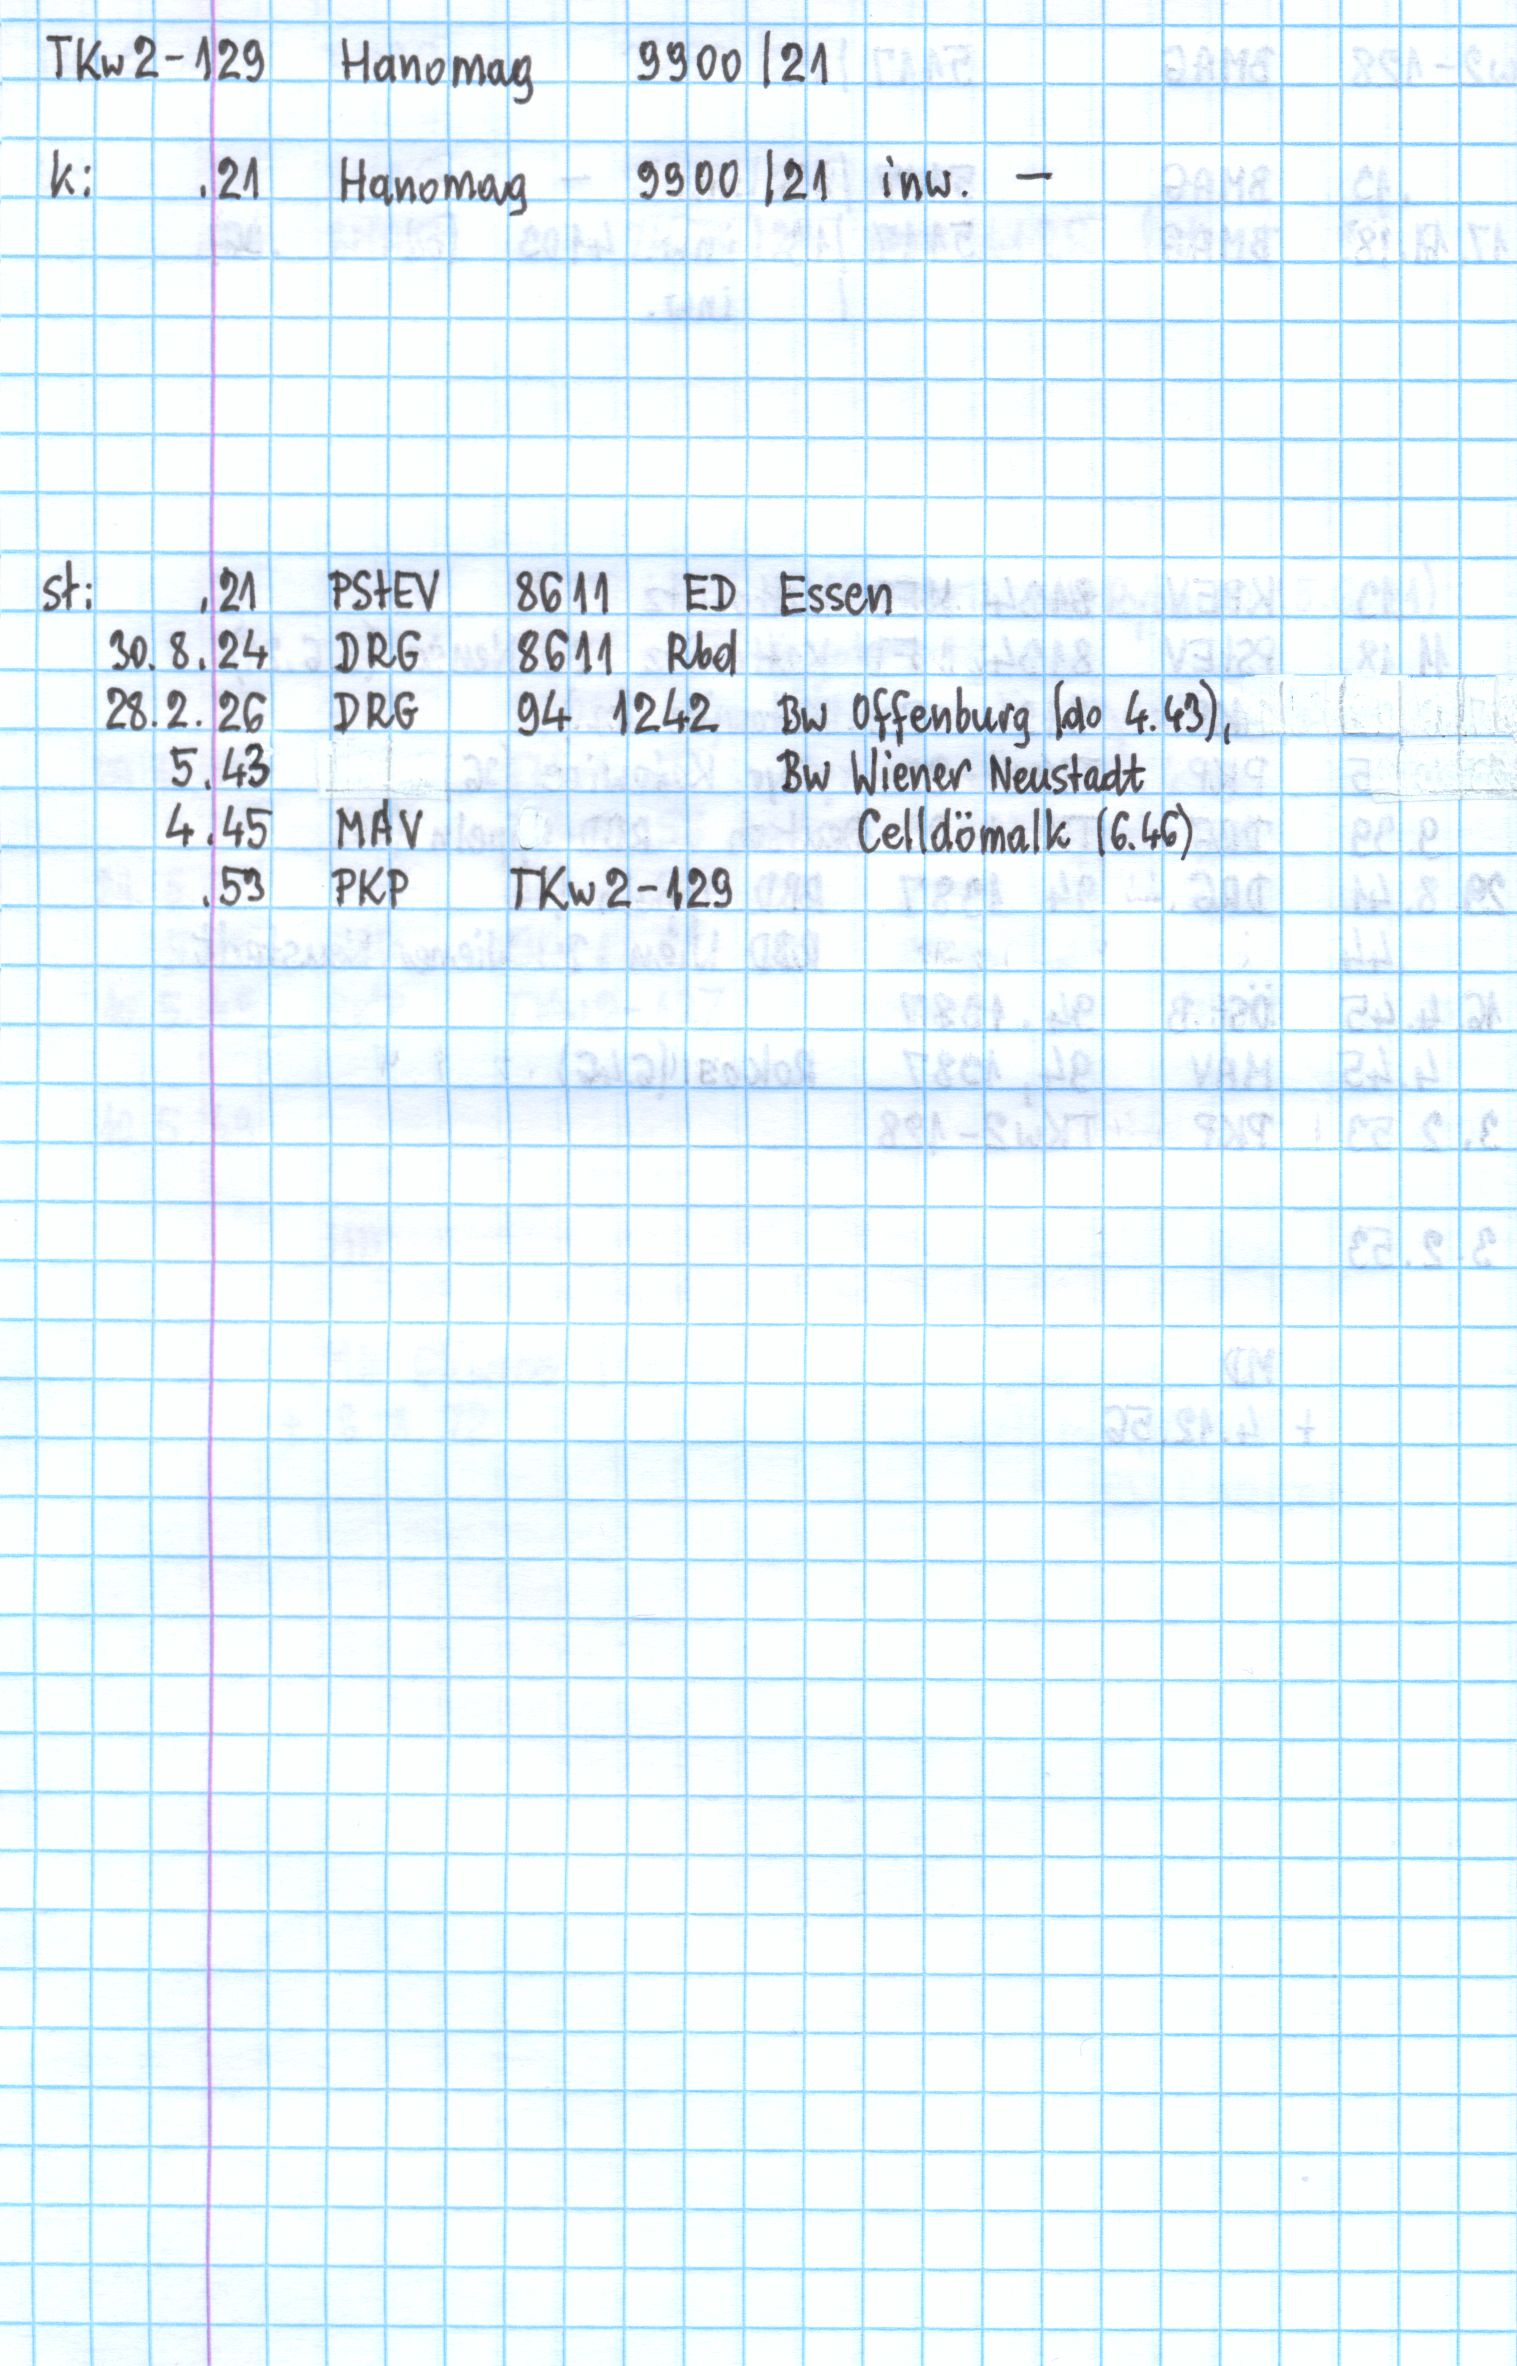 TKw2-129 Hanomag 9900/21
k: .21 Hanomag 9900/21 inw. –
st: .21 PStEV 8611 ED Essen
30.8.24 DRG 8611 Rbd
28.2.26 DRG 94 1242 Bw Offenburg (do 4.43),
5.43 Bw Wiener Neustadt
4.45 MÁV Celldömalk (6.46)
.53 PKP TKw2-129